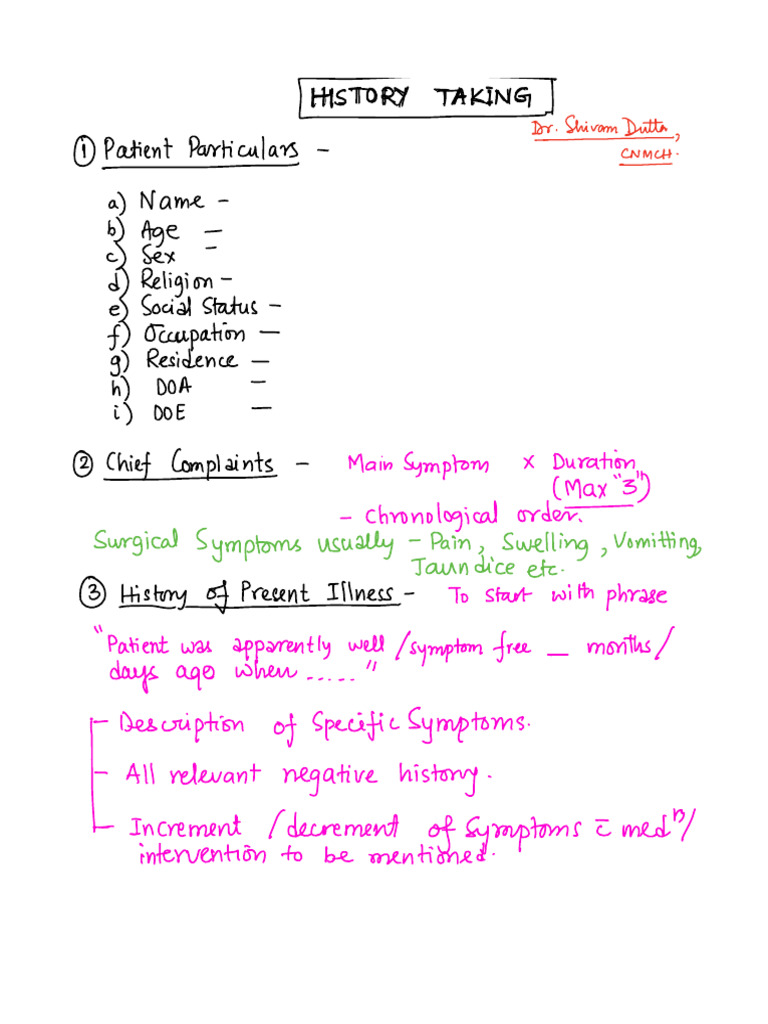 HISTORY TAKING
Dr. Shivam Dutta,
CNMCH.
① Patient Particulars -
a) Name -
b) Age -
c) Sex -
d) Religion -
e) Social Status -
f) Occupation -
g) Residence -
h) DOA -
i) DOE -
② Chief Complaints - Main Symptom x Duration
(Max "3")
- Chronological order.
Surgical Symptoms usually - Pain, Swelling, Vomitting,
Jaundice etc.
③ History of Present Illness - To start with phrase
"Patient was apparently well / symptom free _ months/
days ago when ....."
- Description of Specific Symptoms.
- All relevant negative history.
- Increment / decrement of Symptoms c̄ medⁿ/
intervention to be mentioned.